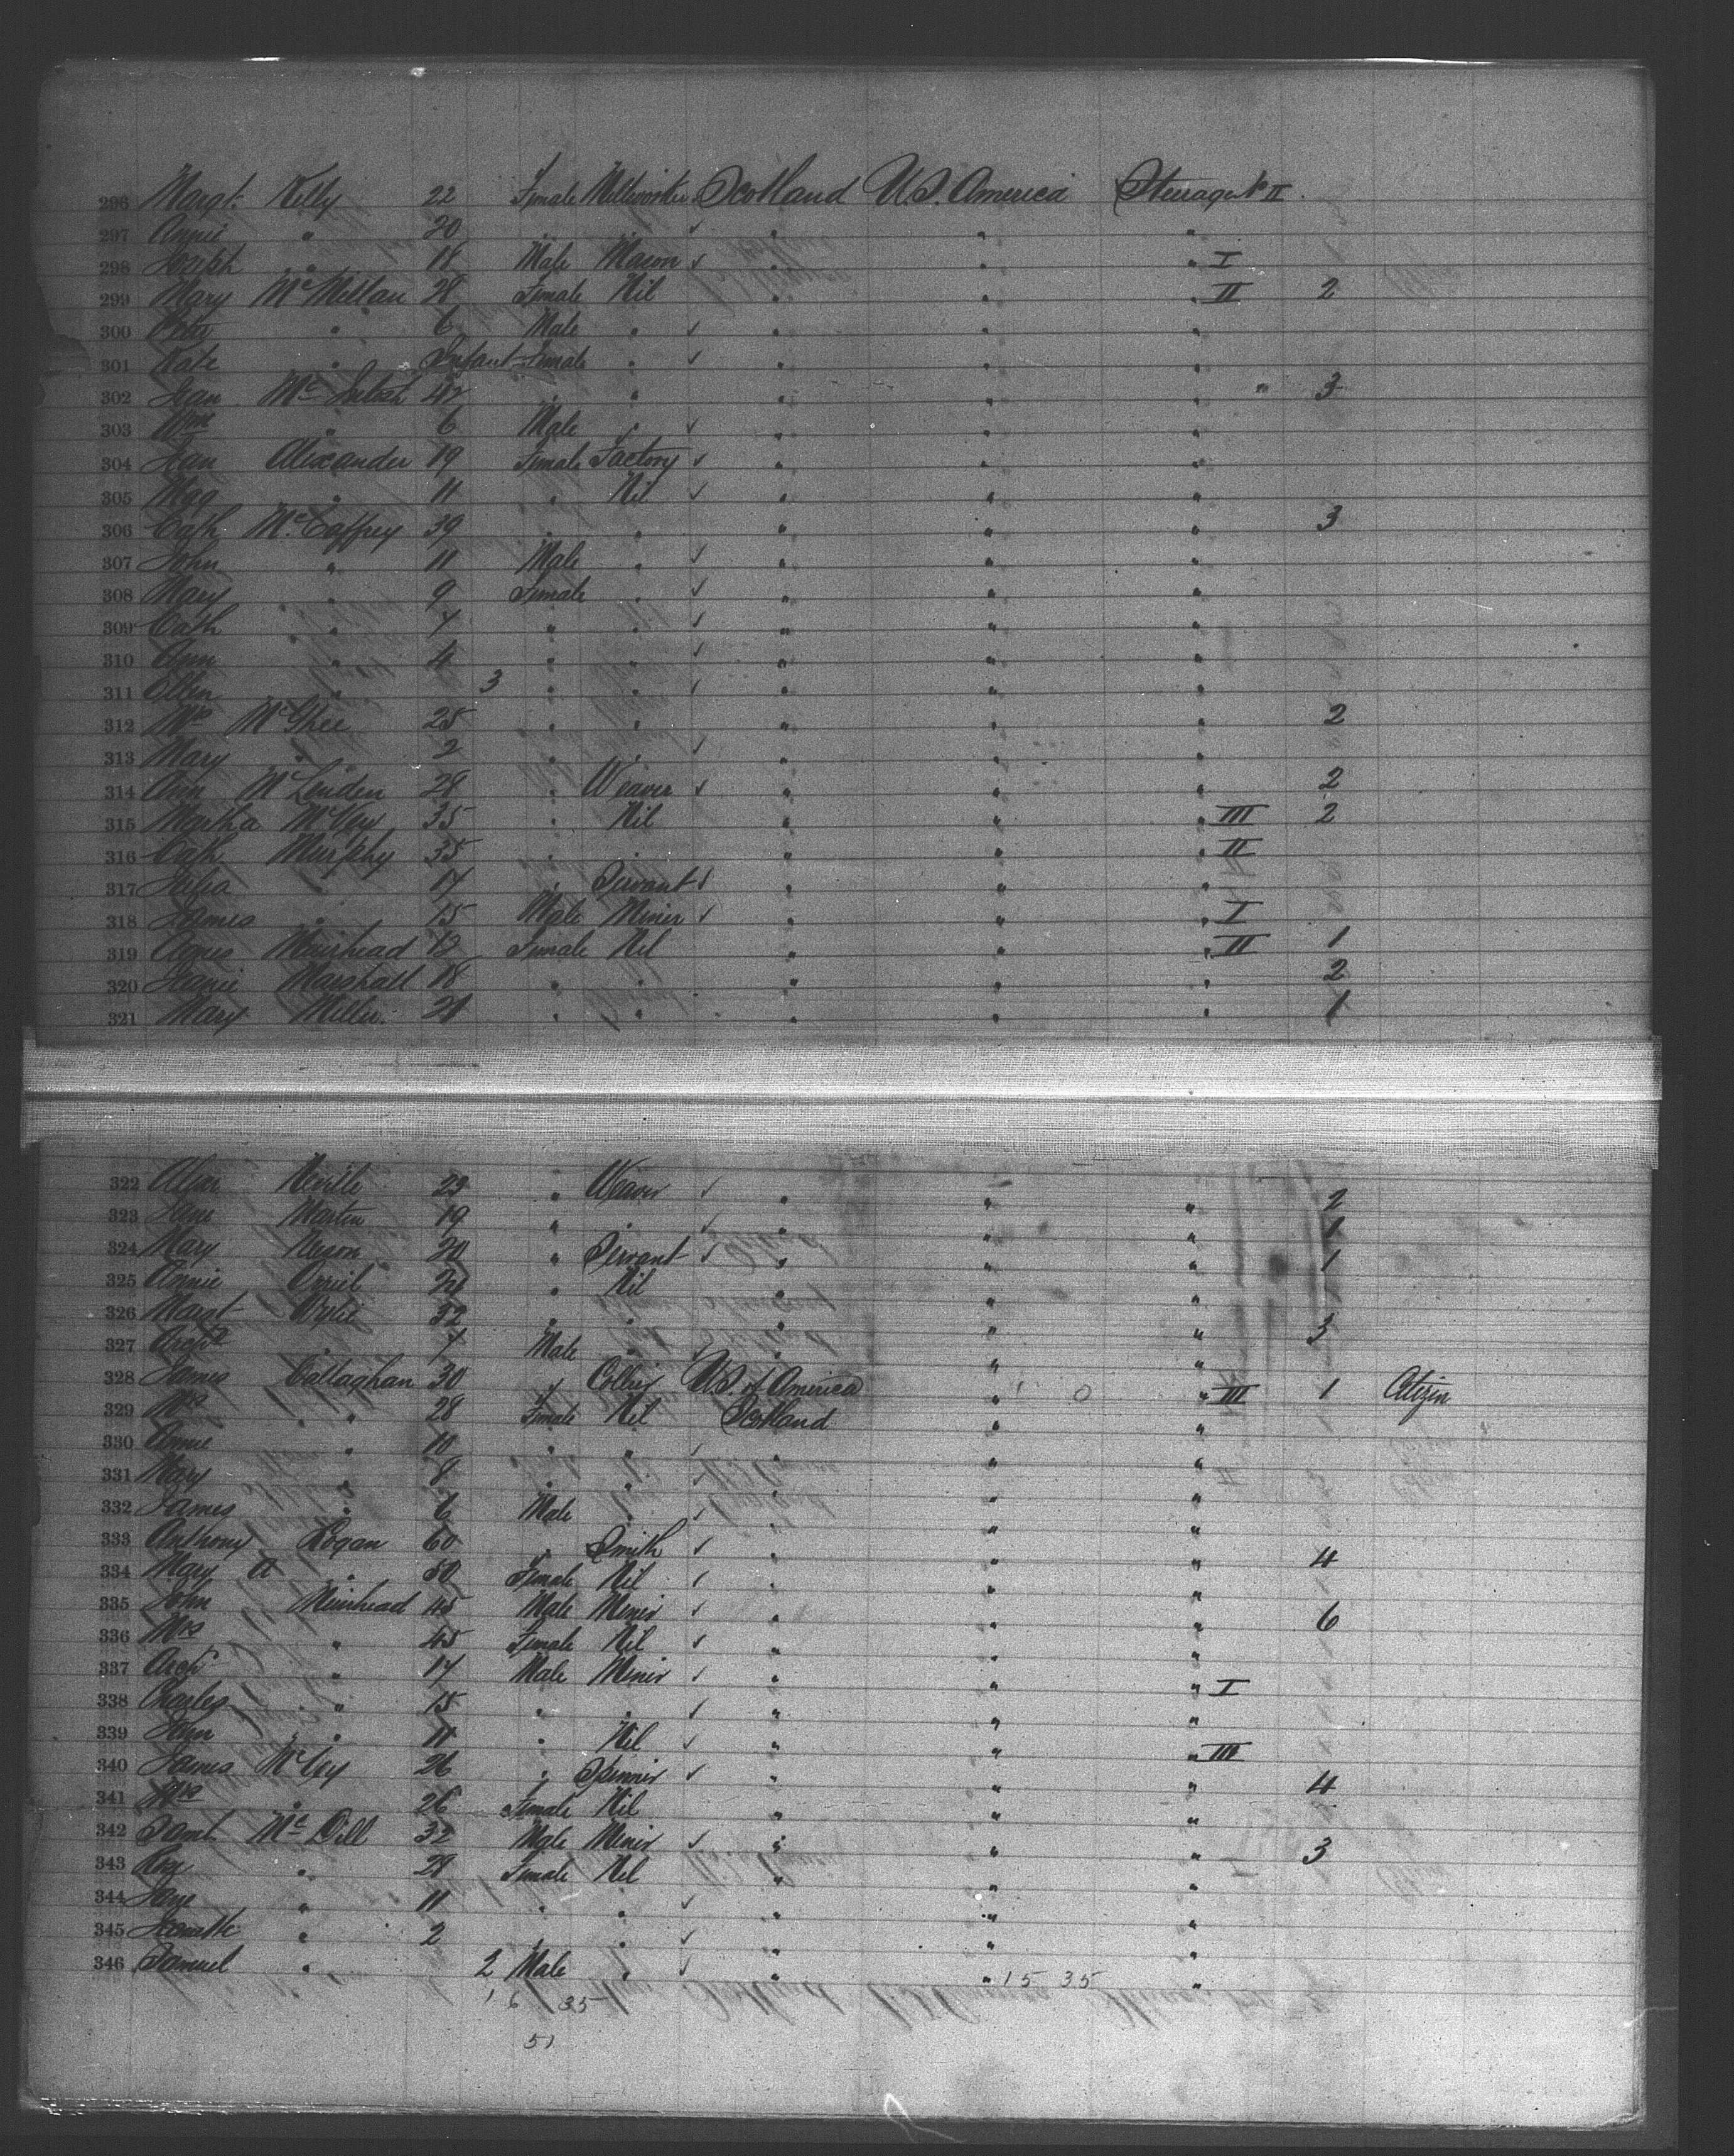 296 Margt Kelly 22 Female Millworker Scotland U.S. America Steerage II
297 Annie " 20 " " " " "
298 Joseph " 18 Male Mason " " " I
299 Mary McMillan 28 Female Nil " " " II 2
300 " 6 Male " " " "
301 Kate " Infant Female " " " "
302 Jean McIntosh 42 " " " " " 3
303 Wm " 6 Male " " " "
304 Jean Alexander 19 Female Factory " " "
305 Mag " 11 " Nil " " "
306 Cath McCaffrey 39 " " " " " 3
307 John " 11 Male " " " "
308 Mary " 9 Female " " " "
309 Cath " 7 " " " " "
310 Ann " 4 " " " " "
311 Ellen " 3 " " " " "
312 Mrs McGhee 25 " " " " " 2
313 Mary " 2 " " " " "
314 Ann McLinden 28 " Weaver " " " 2
315 Martha McVey 35 " Nil " " " III 2
316 Cath Murphy 35 " " " " " II
317 " 17 " Servant " " "
318 James " 15 Male Miner " " " I
319 Agnes Muirhead 12 Female Nil " " " II 1
320 Jeanie Marshall 18 " " " " " 2
321 Mary Miller 21 " " " " " 1
322 Neville 23 " Weaver " " " 2
323 Jane Martin 19 " " " " " 1
324 Mary 20 " Servant " " " 1
325 Annie " Nil " " " 1
326 Margt Wylie 32 " " " " " 3
327 Archd " 7 Male " " " "
328 James Callaghan 30 " Collier U.S. of America " " III 1 Citizen
329 Mrs " 28 Female Nil Scotland " "
330 Annie " 10 " " " " "
331 Mary " 8 " " " " "
332 James " 6 Male " " " "
333 Anthony Rogan 60 " Smith " " " 4
334 Mary A " 50 Female Nil " " "
335 John Muirhead 45 Male Miner " " " 6
336 Mrs " 45 Female Nil " " "
337 Archd " 17 Male Miner " " "
338 Charles " 15 " " " " " I
339 John " 11 " Nil " " "
340 James McVey 26 " Spinner " " " III 4
341 Mrs " 26 Female Nil " " "
342 Saml McDill 32 Male Miner " " " 3
343 Rose " 29 Female Nil " " "
344 Jane " 11 " " " " "
345 " 2 " " " " "
346 Samuel " 2 Male " " " "
15 35
16 35
51